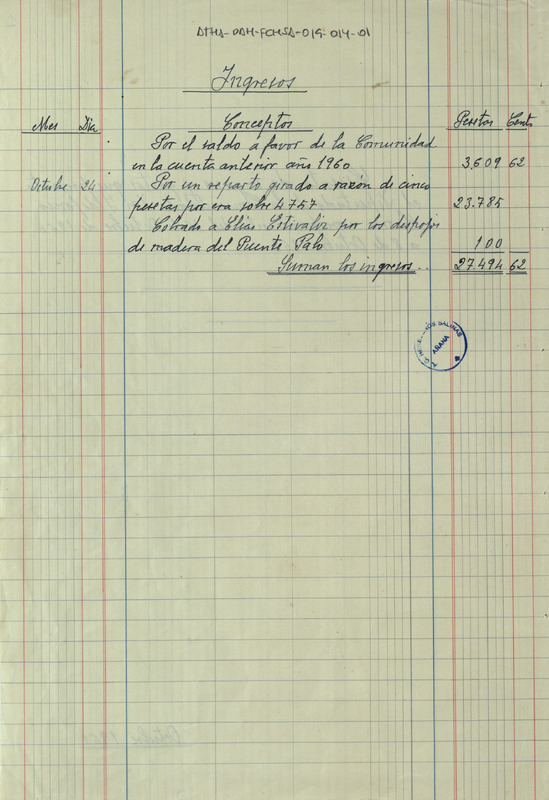 ATHA-DAH-FCHSA-019-014-01
Ingresos
Mes Dia Conceptos Pesetas Cents
Por el saldo a favor de la Comunidad
en la cuenta anterior año 1960 3.609 62
Octubre 24 Por un reparto girado a razón de cinco
pesetas por era sobre 4757 23.785
Cobrado a Elías Estivaliz por los despojos
de madera del Puente Palo 100
Suman los ingresos.. 27.494 62
SALINAS
ARANA